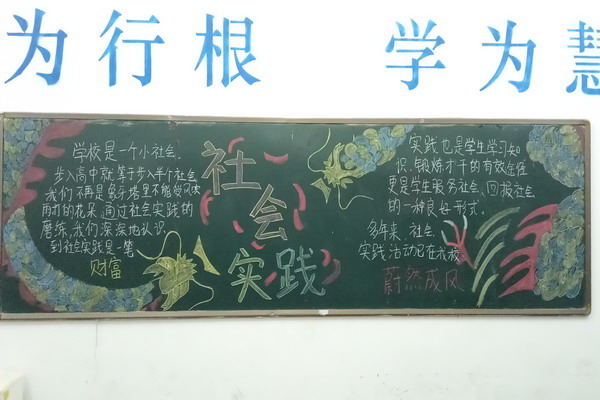 为行根 学为慧
学校是一个小社会。
步入高中就等于步入半个社会
我们不再是象牙塔里不能经风吹
雨打的花朵,通过社会实践的
磨练,我们深深地认识
到社会实践是一笔
财富
社会
实践
实践也是学生学习知
识、锻炼才干的有效途径
更是学生服务社会、回报社会
的一种良好形式。
多年来,社会
实践活动已在我校
蔚然成风